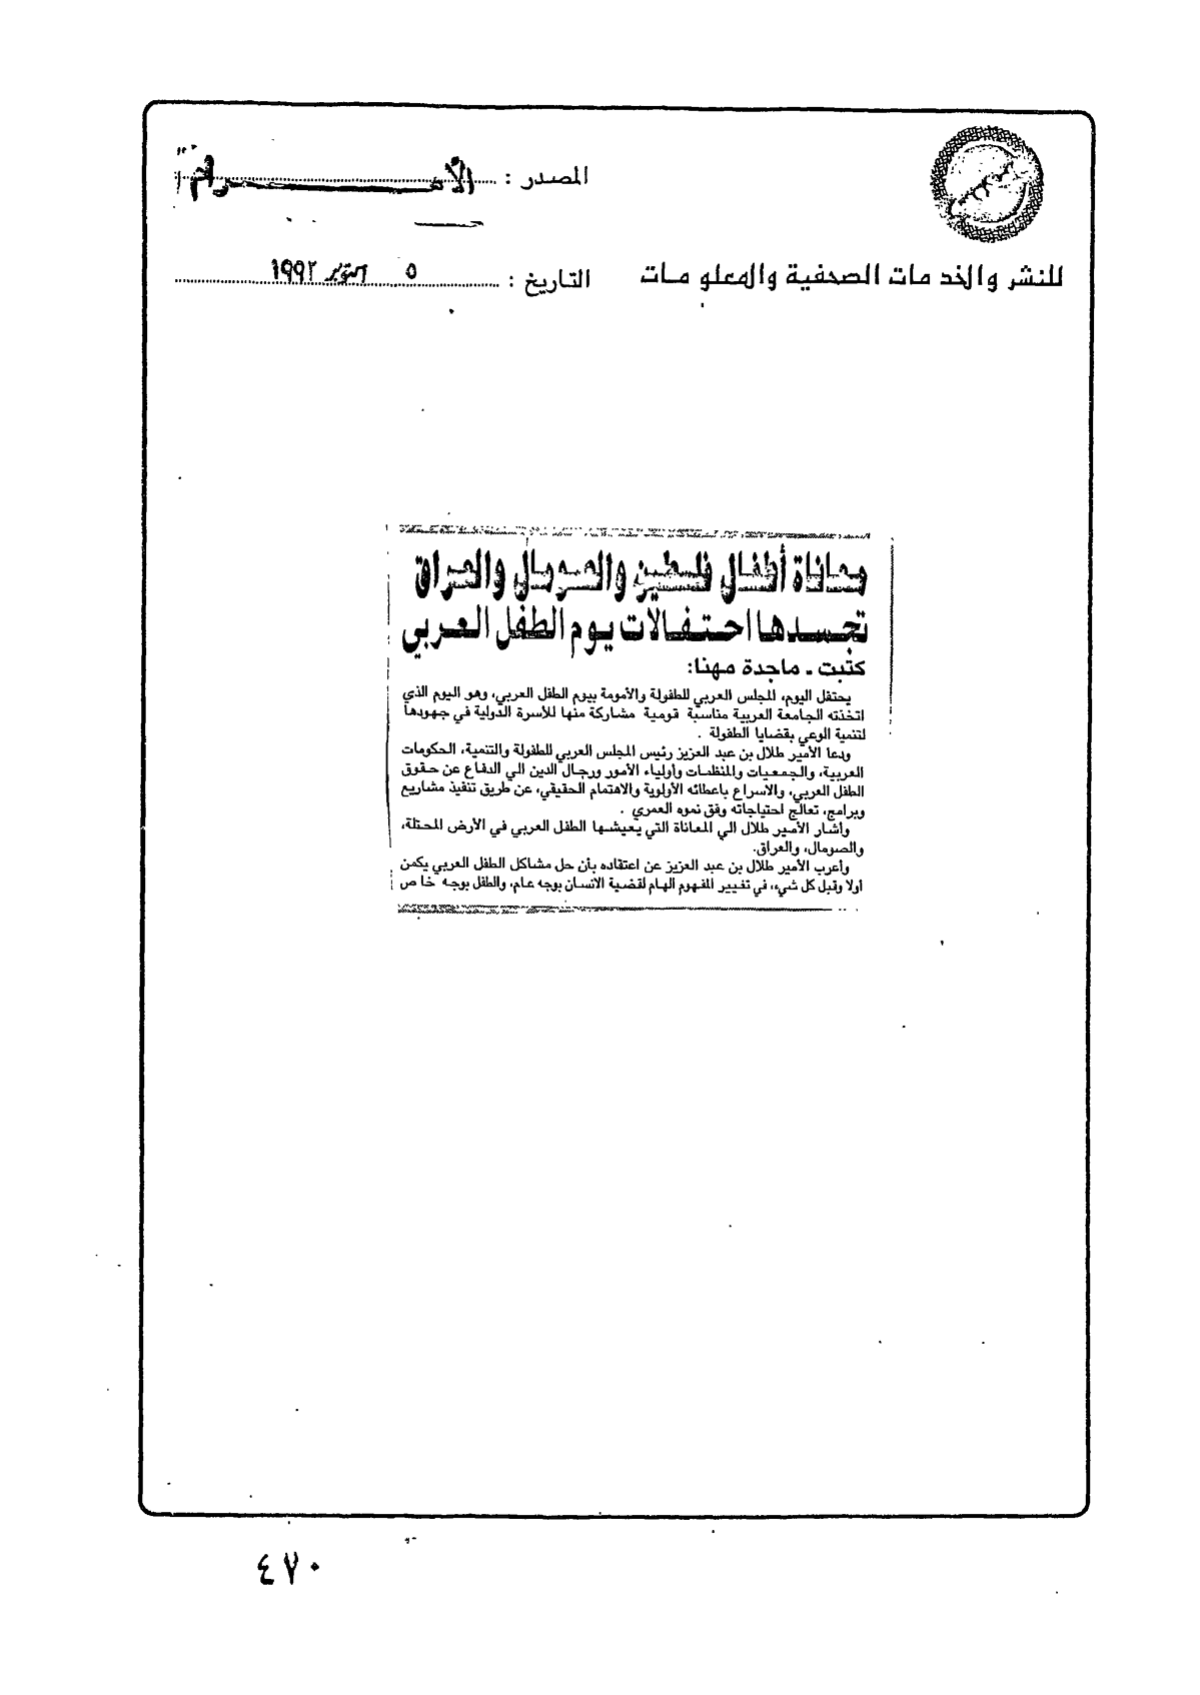 المصدر : الأهــــــرام
للنشر والخدمات الصحفية والمعلومات
التاريخ : ٥ أكتوبر ١٩٩٢
معاناة أطفال فلسطين والصومال والعراق
تجسدها احتفالات يوم الطفل العربي
كتبت ـ ماجدة مهنا:
يحتفل اليوم، المجلس العربي للطفولة والأمومة بيوم الطفل العربي، وهو اليوم الذي
اتخذته الجامعة العربية مناسبة قومية مشاركة منها للأسرة الدولية في جهودها
لتنمية الوعي بقضايا الطفولة .
ودعا الأمير طلال بن عبد العزيز رئيس المجلس العربي للطفولة والتنمية، الحكومات
العربية، والجمعيات والمنظمات وأولياء الأمور ورجال الدين الي الدفاع عن حقوق
الطفل العربي، والاسراع باعطائه الأولوية والاهتمام الحقيقي، عن طريق تنفيذ مشاريع
وبرامج، تعالج احتياجاته وفق نموه العمري .
وأشار الأمير طلال الي المعاناة التي يعيشها الطفل العربي في الأرض المحتلة،
والصومال، والعراق.
وأعرب الأمير طلال بن عبد العزيز عن اعتقاده بأن حل مشاكل الطفل العربي يكمن
أولا وقبل كل شيء، في تغيير المفهوم الهام لقضية الانسان بوجه عام، والطفل بوجه خاص
٤٧٠